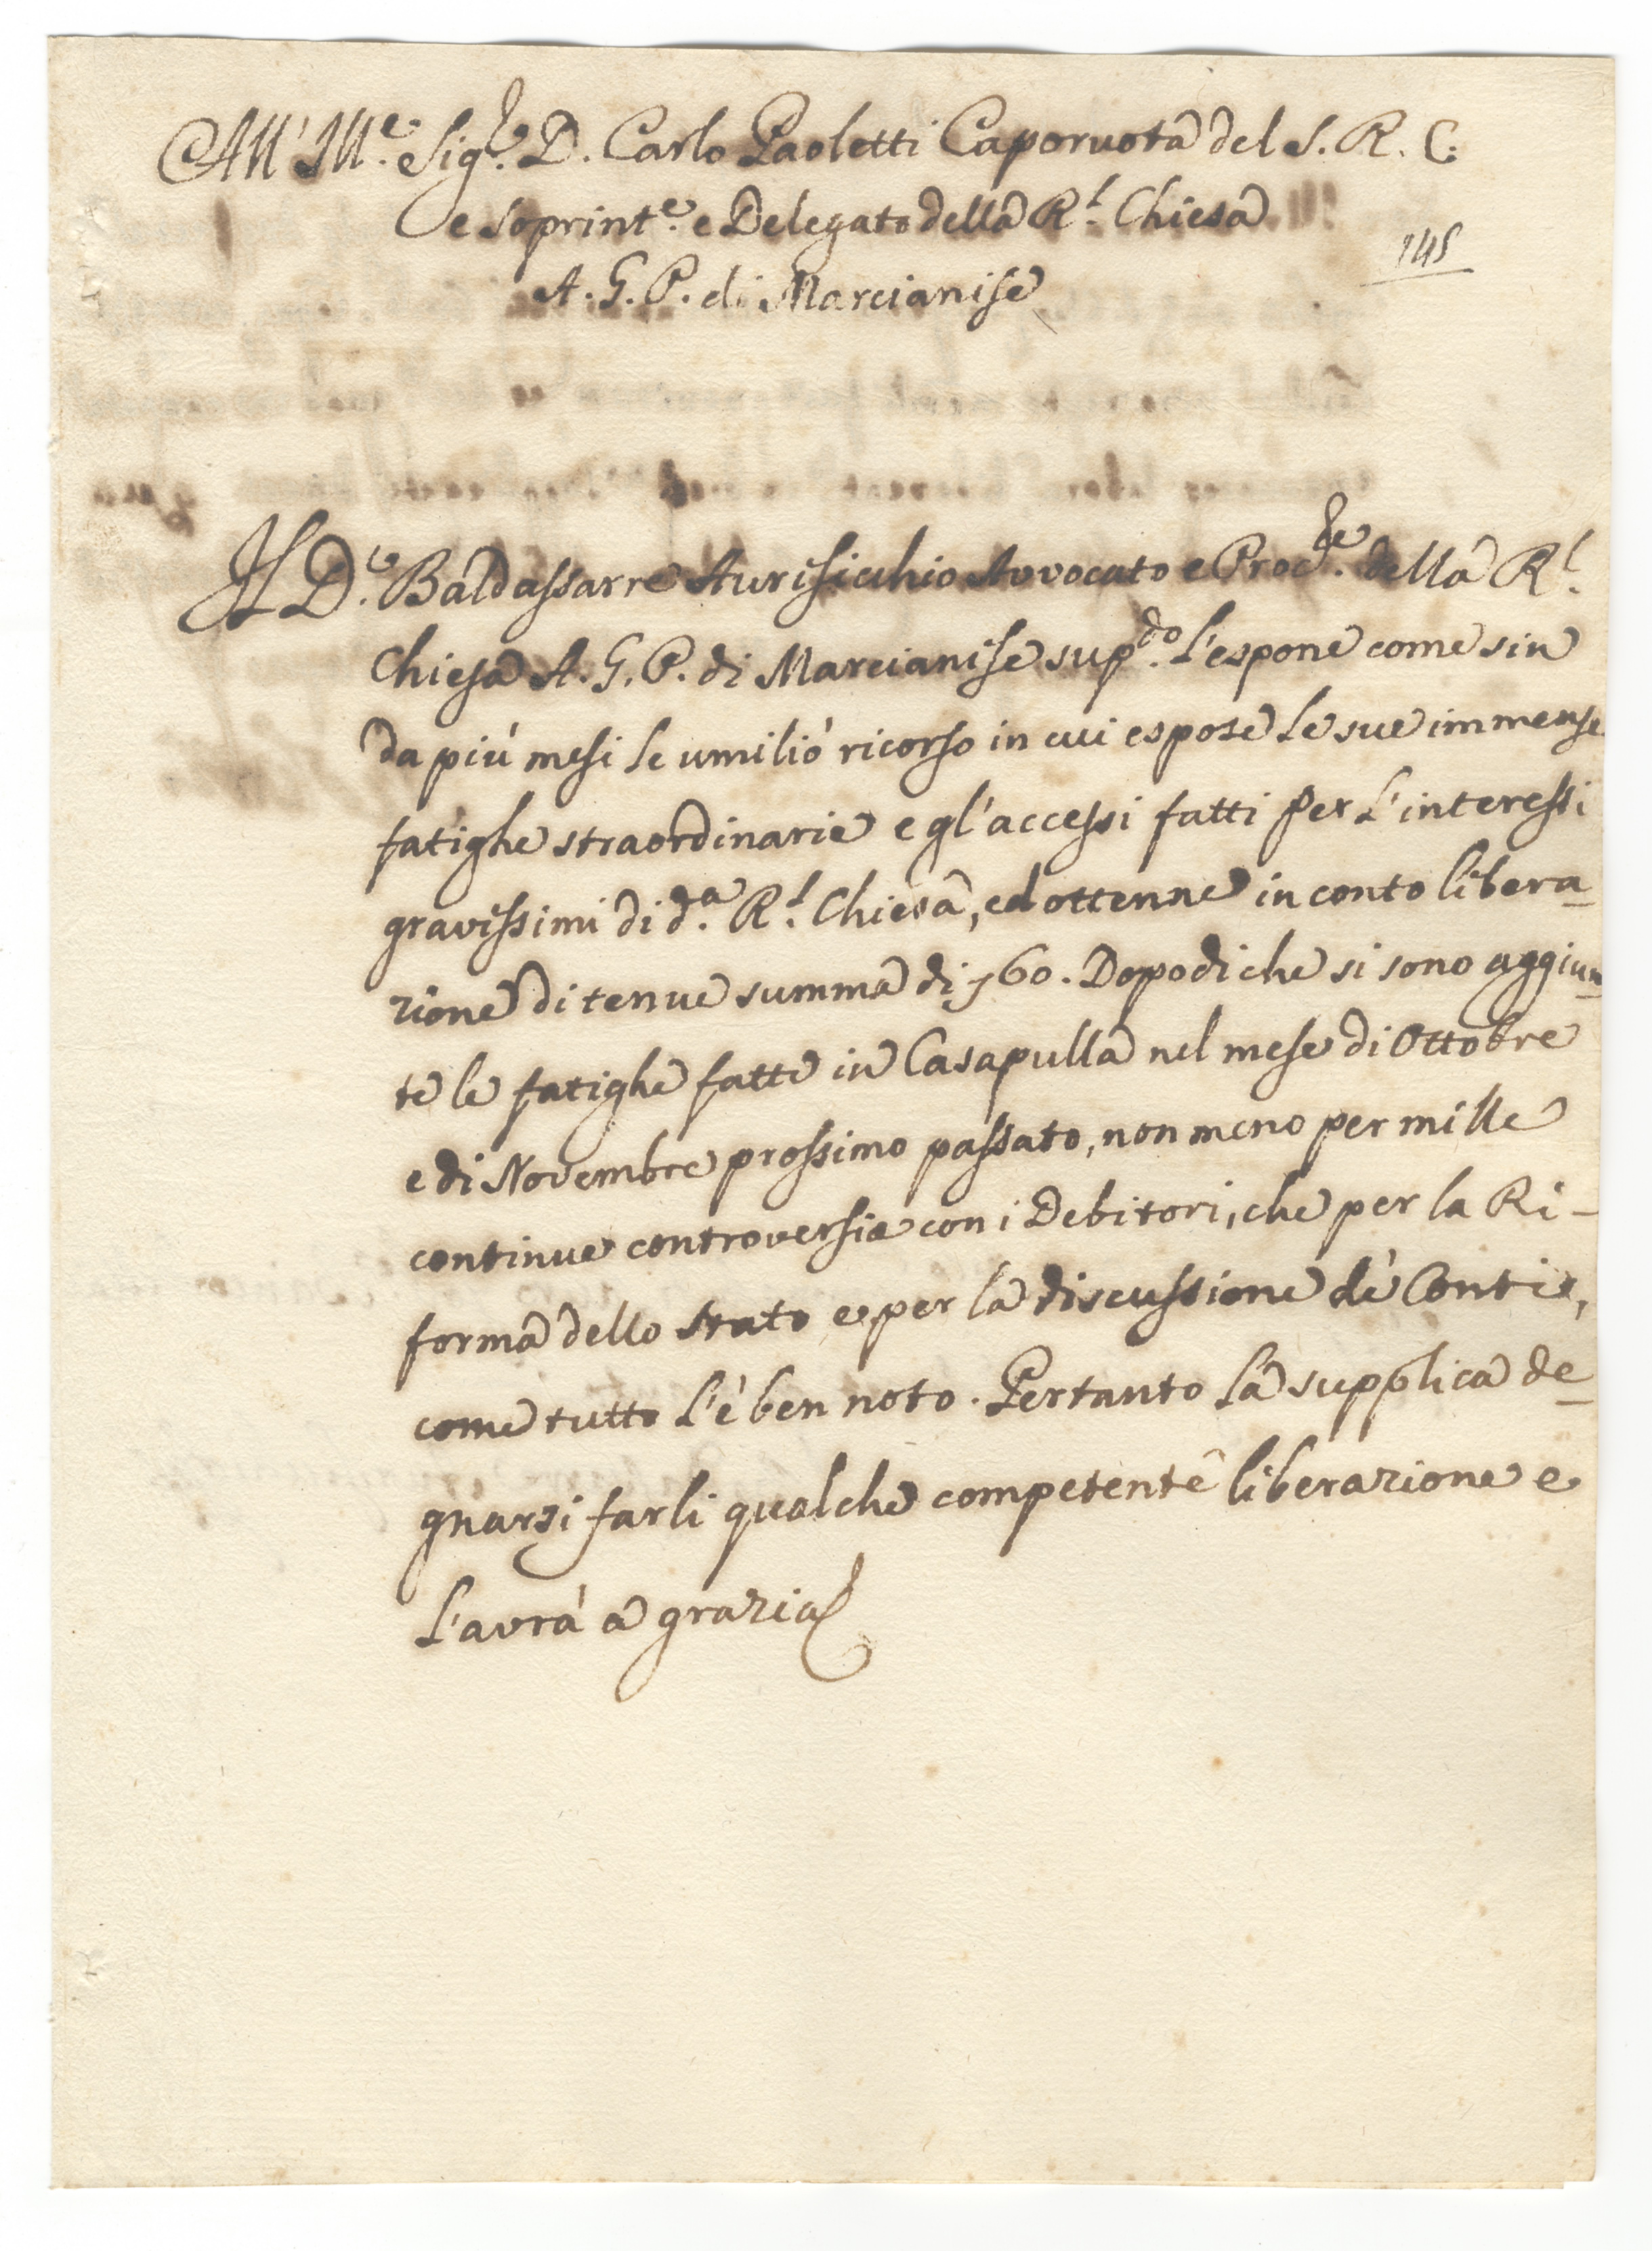 All' Ill.e Sig.re D. Carlo Paoletti Caporuota del S. R. C.
e Soprint.e e Delegato della R.l Chiesa
145
A. G. P. di Marcianise
Il D.r Baldassarre Aurisicchio Avvocato e Proc.re della R.l
Chiesa A. G. P. di Marcianise sup.do l'espone come sin
da più mesi le umiliò ricorso in cui espose le sue immense
fatighe straordinarie e gl'accessi fatti per l'interessi
gravissimi di d.a R.l Chiesa, ed ottenne in conto libera-
zione di tenue summa di 60. Dopodiche si sono aggiun-
te le fatighe fatte in Casapulla nel mese di Ottobre
e di Novembre prossimo passato, non meno per mille
continue controversie con i Debitori, che per la Ri-
forma dello stato e per la discussione de' Conti,
come tutto l'è ben noto. Pertanto la supplica de-
gnarsi farli qualche competente liberazione e
l'avrà a grazia